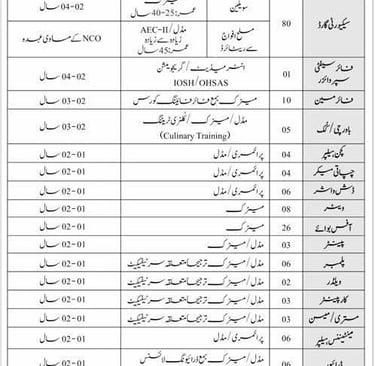 سیکیورٹی گارڈ 80 سویلین میٹرک عمر: 25-40 سال 02-04 سال
مسلح افواج سے ریٹائرڈ مڈل/AEC-II زیادہ سے زیادہ عمر: 45 سال NCO کے مساوی عہدہ
فائر سیفٹی سپروائزر 01 انٹرمیڈیٹ/گریجویشن IOSH/OHSAS 02-04 سال
فائر مین 10 میٹرک بمع فائر فائٹنگ کورس 02-03 سال
باورچی/کک 05 مڈل/میٹرک/کلنری ٹریننگ (Culinary Training) 02-03 سال
کچن ہیلپر 04 پرائمری/مڈل 01-02 سال
چپاتی میکر 04 پرائمری/مڈل 01-02 سال
ڈش واشر 06 پرائمری/مڈل 01-02 سال
ویٹر 08 میٹرک 01-02 سال
آفس بوائے 26 میٹرک 01-02 سال
پینٹر 03 مڈل/میٹرک ترجیحاً متعلقہ سرٹیفکیٹ 01-02 سال
پلمبر 06 مڈل/میٹرک ترجیحاً متعلقہ سرٹیفکیٹ 01-02 سال
ویلڈر 02 مڈل/میٹرک ترجیحاً متعلقہ سرٹیفکیٹ 01-02 سال
کارپینٹر 03 مڈل/میٹرک ترجیحاً متعلقہ سرٹیفکیٹ 01-02 سال
مستری/میسن 03 مڈل/میٹرک ترجیحاً متعلقہ سرٹیفکیٹ 01-02 سال
مینٹیننس ہیلپر 06 پرائمری/مڈل 01-02 سال
ڈرائیور 06 مڈل/میٹرک بمع ڈرائیونگ لائسنس 01-02 سال